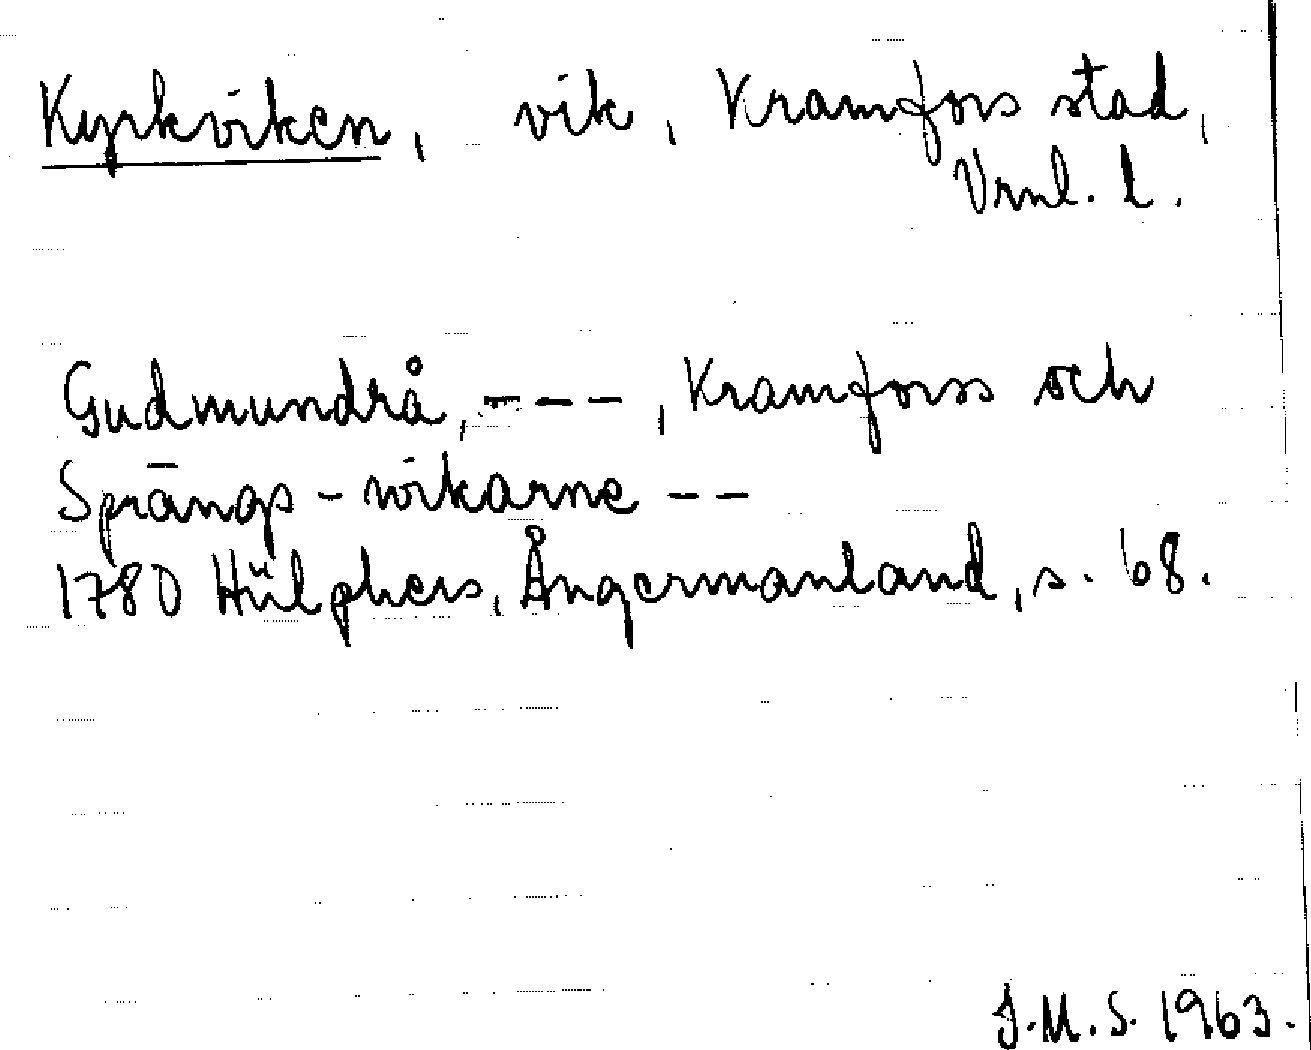 Kyrkviken, vik, Kramfors stad,
Vrnl. l.
Gudmundrå, ---, Kramforss och
Sprängs-wikarne --
1780 Hülphers, Ångermanland, s. 68.
J.M.S. 1963.